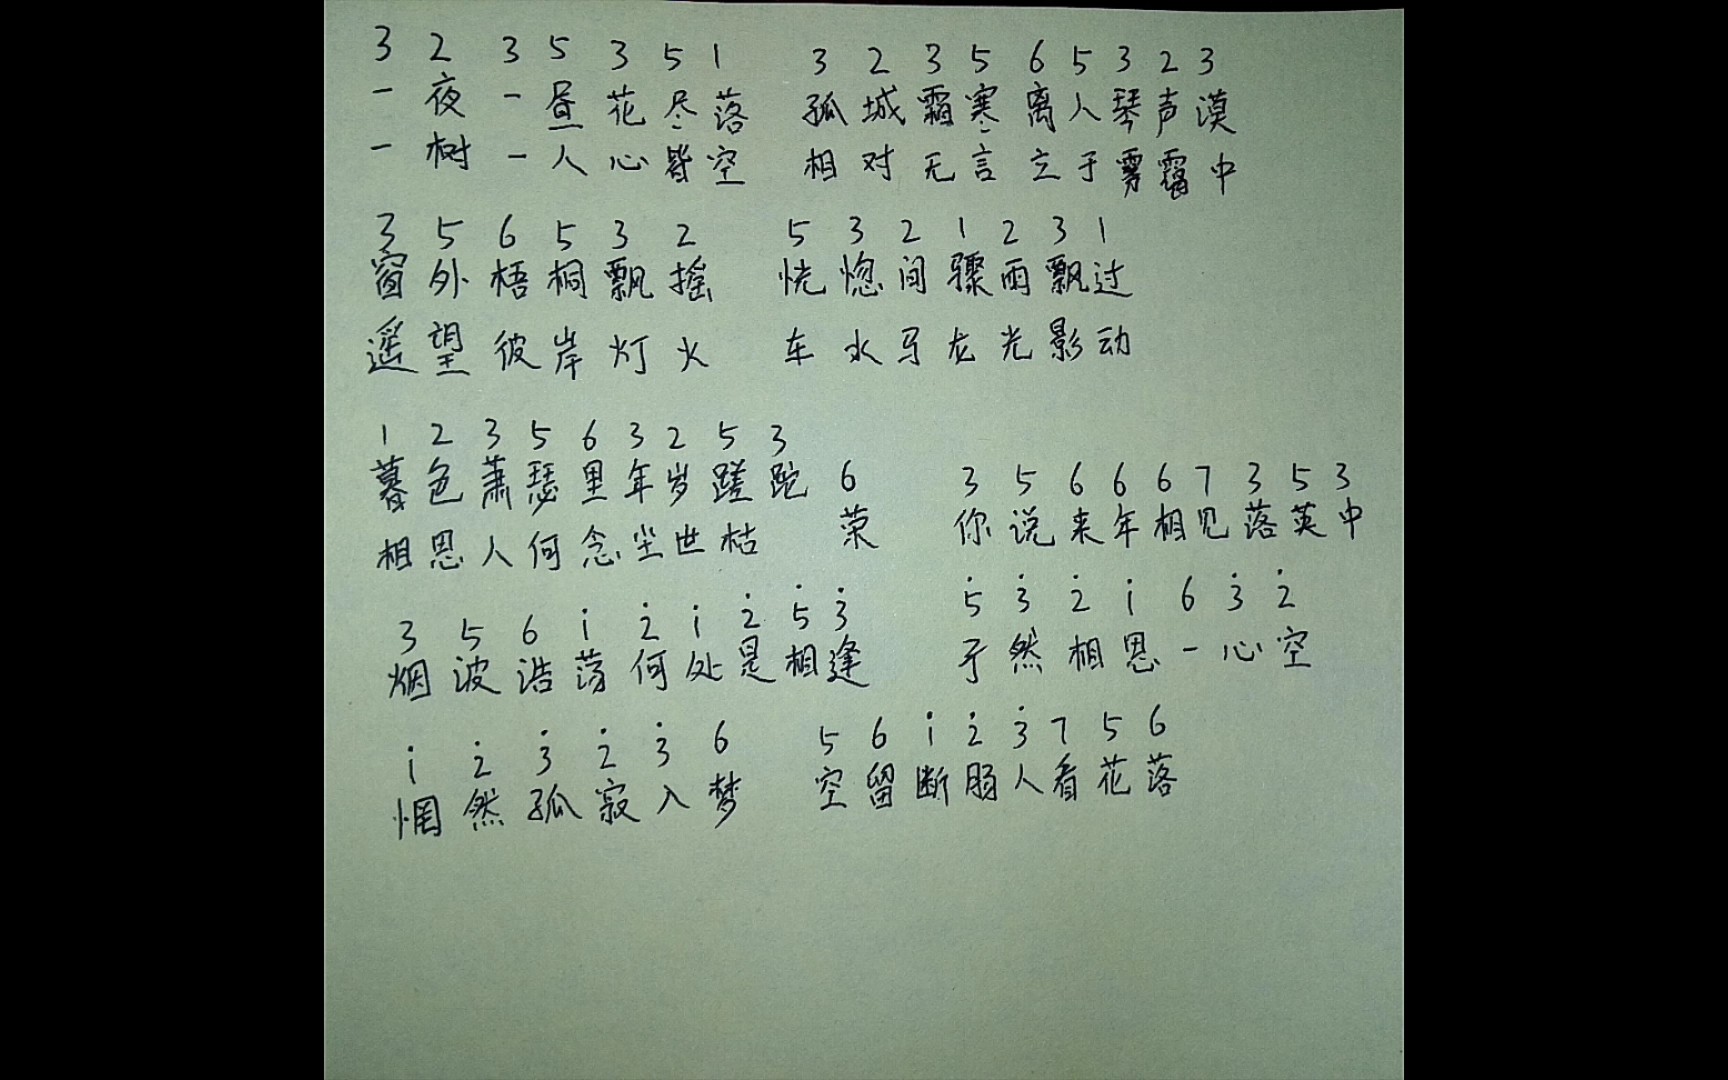 3 2 3 5 3 5 1 3 2 3 5 6 5 3 2 3
一夜一昼花尽落 孤城霜寒离人琴声漠
一树一人心皆空 相对无言立于雾霭中
3 5 6 5 3 2 5 3 2 1 2 3 1
窗外梧桐飘摇 恍惚间骤雨飘过
遥望彼岸灯火 车水马龙光影动
1 2 3 5 6 3 2 5 3
暮色萧瑟里年岁蹉跎 6 3 5 6 6 6 7 3 5 3
相思人何念尘世枯 荣 你说来年相见落英中
3 5 6 i 2̇ i 2̇ 5̇ 3̇ 5̇ 3̇ 2̇ i 6 3̇ 2̇
烟波浩荡何处是相逢 孑然相思一心空
i 2̇ 3̇ 2̇ 3̇ 6 5 6 i 2̇ 3̇ 7 5 6
惘然孤寂入梦 空留断肠人看花落